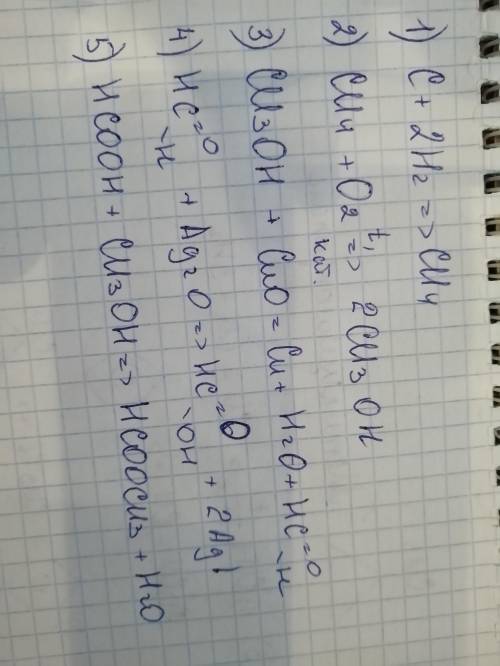 1) C + 2H2 => CH4
2) CH4 + O2 t, кат. => 2CH3OH
3) CH3OH + CuO = Cu + H2O + HC=O -H
4) HC=O -H + Ag2O => HC=O -OH + 2Ag↓
5) HCOOH + CH3OH => HCOOCH3 + H2O